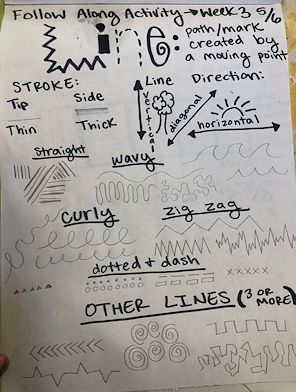 Follow Along Activity → Week 3 5/6
Line: path/mark
created by
a moving point
STROKE:
Line
Direction:
Tip
Side
vertical
diagonal
horizontal
Thin
Thick
Straight
wavy
curly
zig zag
dotted + dash
xxxxxx
OTHER LINES (3 OR
MORE)